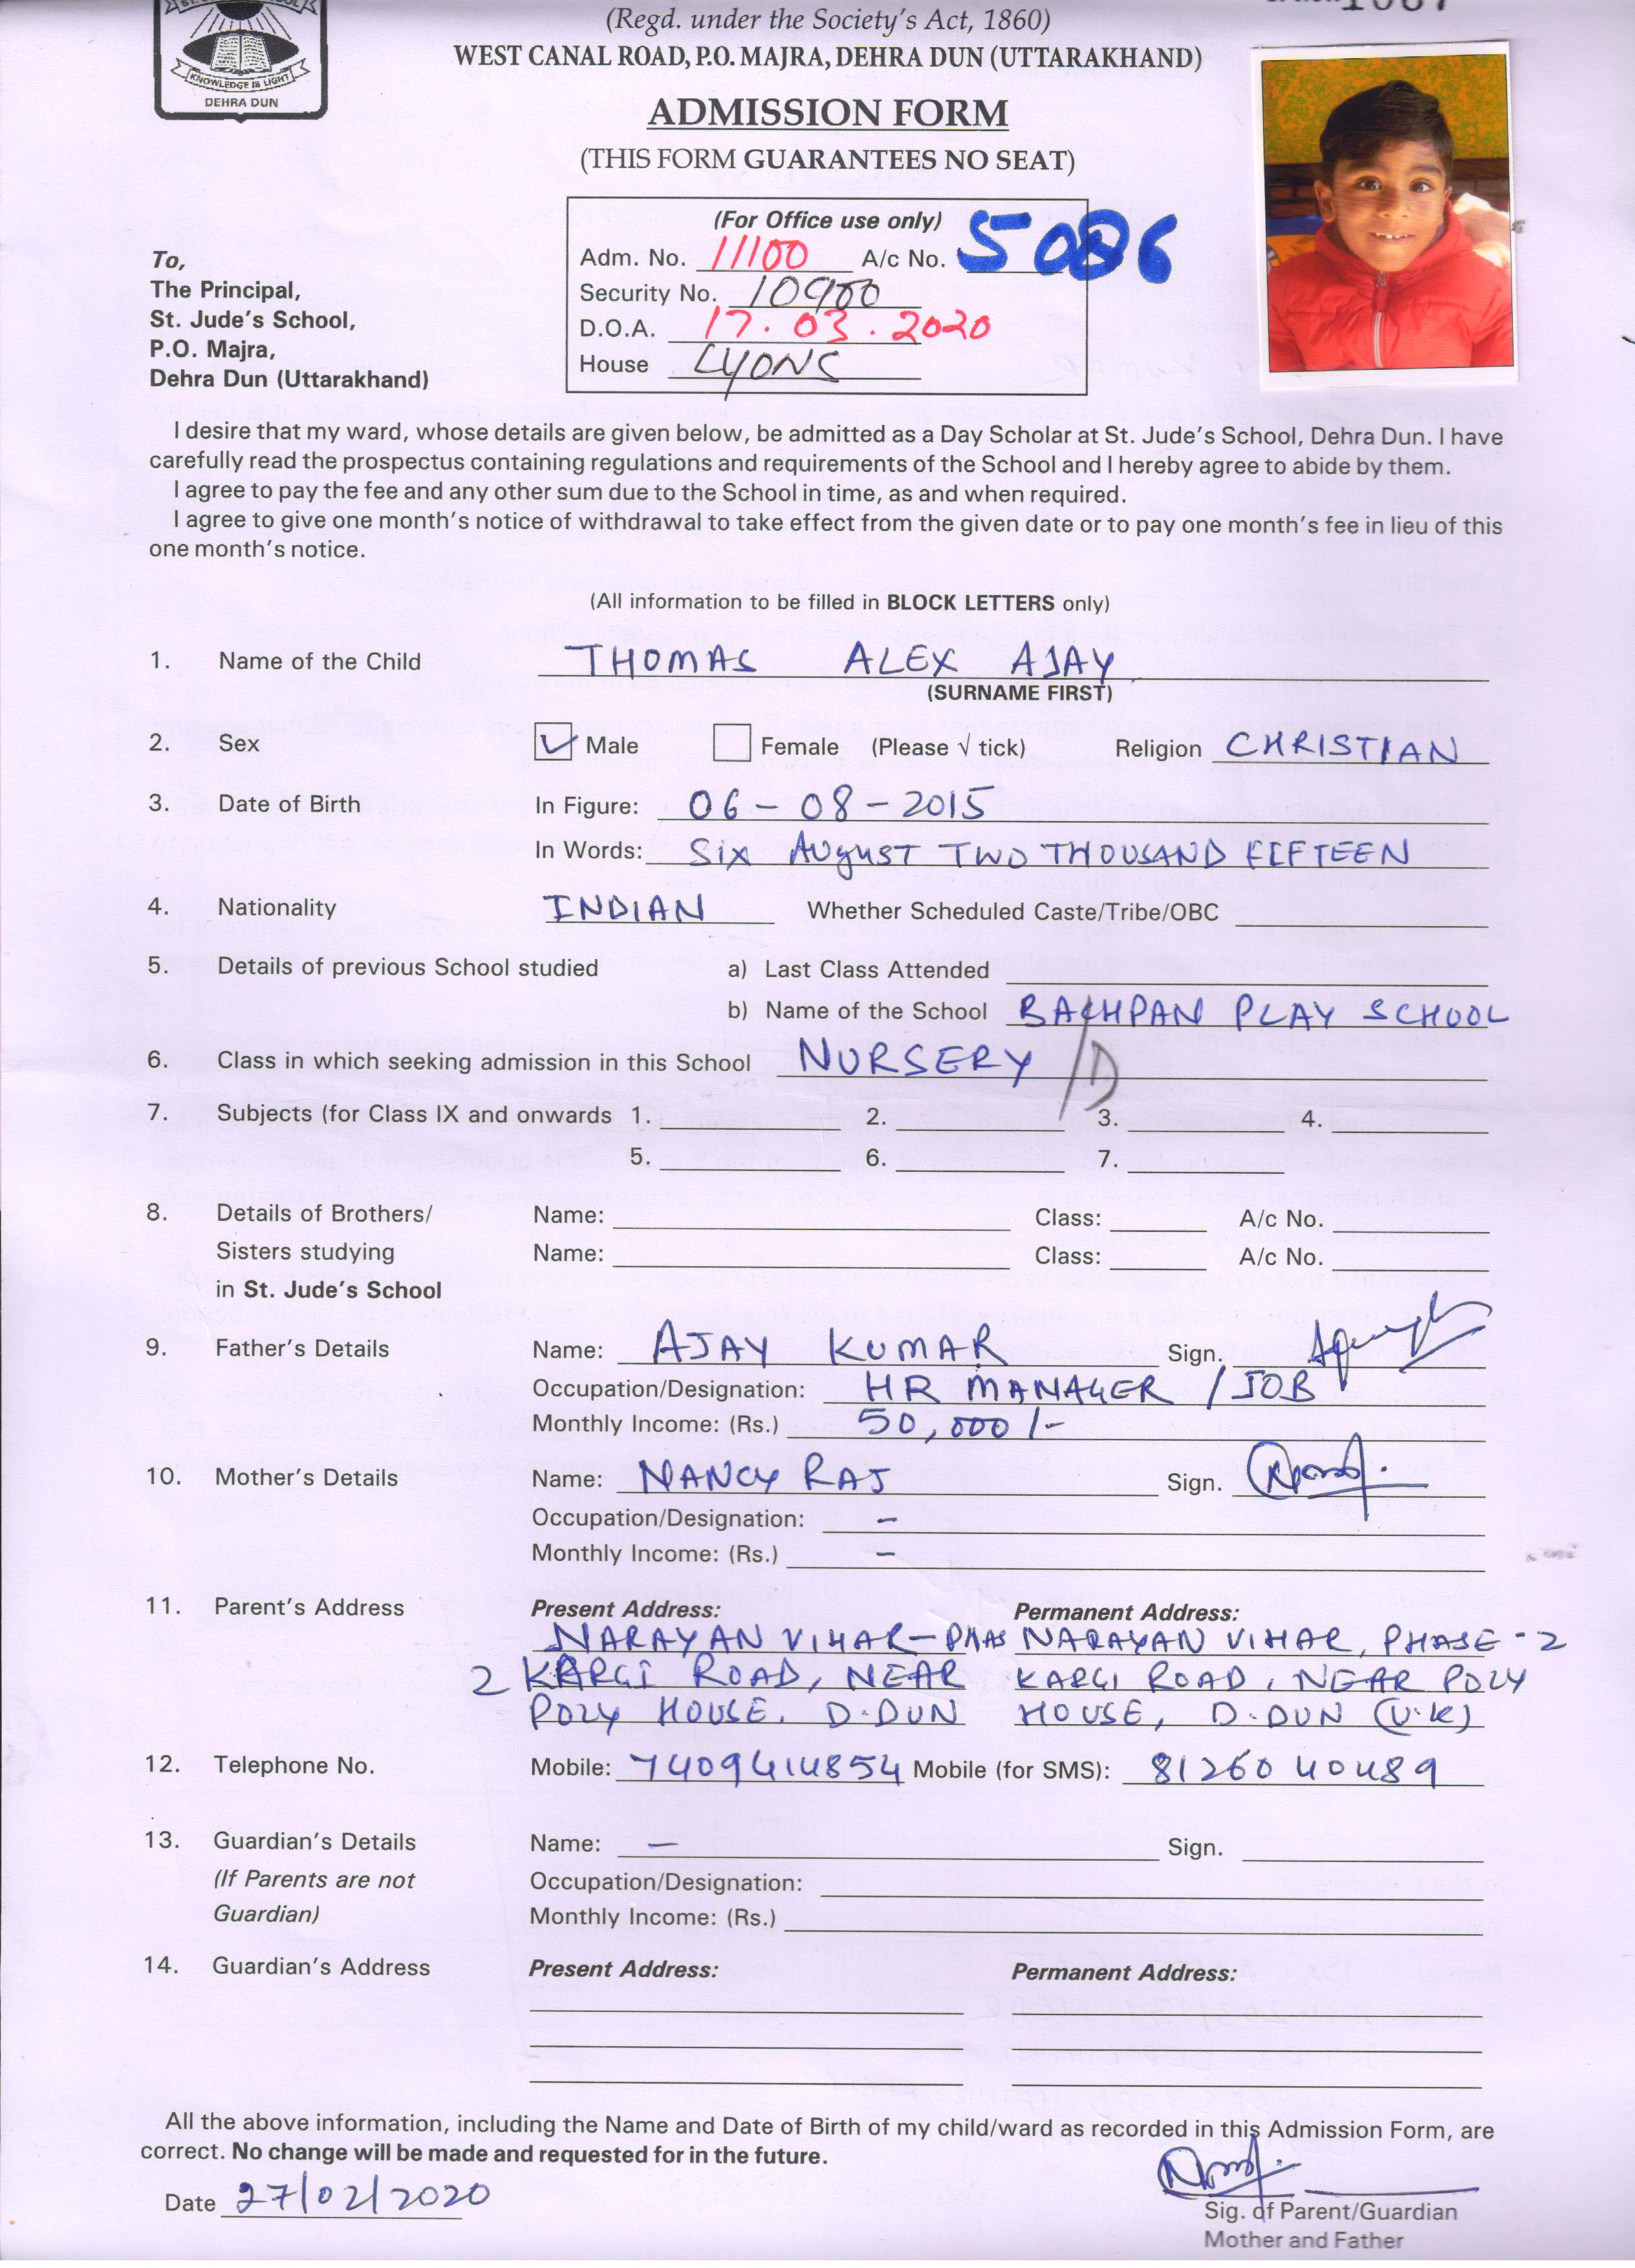 (Regd. under the Society's Act, 1860)
WEST CANAL ROAD, P.O. MAJRA, DEHRA DUN (UTTARAKHAND)
KNOWLEDGE IS LIGHT
DEHRA DUN
ADMISSION FORM
(THIS FORM GUARANTEES NO SEAT)
(For Office use only)
Adm. No. 11100 A/c No. 5086
Security No. 10900
D.O.A. 17.03.2020
House LYONS
To,
The Principal,
St. Jude's School,
P.O. Majra,
Dehra Dun (Uttarakhand)
I desire that my ward, whose details are given below, be admitted as a Day Scholar at St. Jude's School, Dehra Dun. I have
carefully read the prospectus containing regulations and requirements of the School and I hereby agree to abide by them.
I agree to pay the fee and any other sum due to the School in time, as and when required.
I agree to give one month's notice of withdrawal to take effect from the given date or to pay one month's fee in lieu of this
one month's notice.
(All information to be filled in BLOCK LETTERS only)
1. Name of the Child THOMAS ALEX AJAY
(SURNAME FIRST)
2. Sex ✓ Male Female (Please √ tick) Religion CHRISTIAN
3. Date of Birth In Figure: 06-08-2015
In Words: SIX AUGUST TWO THOUSAND FIFTEEN
4. Nationality INDIAN Whether Scheduled Caste/Tribe/OBC
5. Details of previous School studied a) Last Class Attended
b) Name of the School BACHPAN PLAY SCHOOL
6. Class in which seeking admission in this School NURSERY /D
7. Subjects (for Class IX and onwards 1. 2. 3. 4.
5. 6. 7.
8. Details of Brothers/ Name: Class: A/c No.
Sisters studying Name: Class: A/c No.
in St. Jude's School
9. Father's Details Name: AJAY KUMAR Sign.
Occupation/Designation: HR MANAGER / JOB
Monthly Income: (Rs.) 50,000/-
10. Mother's Details Name: NANCY RAJ Sign.
Occupation/Designation: -
Monthly Income: (Rs.) -
11. Parent's Address Present Address: Permanent Address:
NARAYAN VIHAR-PHAS NARAYAN VIHAR, PHASE-2
2 KARGI ROAD, NEAR KARGI ROAD, NEAR POLY
POLY HOUSE. D.DUN HOUSE, D.DUN (U.K)
12. Telephone No. Mobile: 7409414854 Mobile (for SMS): 8126040489
13. Guardian's Details Name: - Sign.
(If Parents are not Occupation/Designation:
Guardian) Monthly Income: (Rs.)
14. Guardian's Address Present Address: Permanent Address:
All the above information, including the Name and Date of Birth of my child/ward as recorded in this Admission Form, are
correct. No change will be made and requested for in the future.
Date 27/02/2020
Sig. of Parent/Guardian
Mother and Father